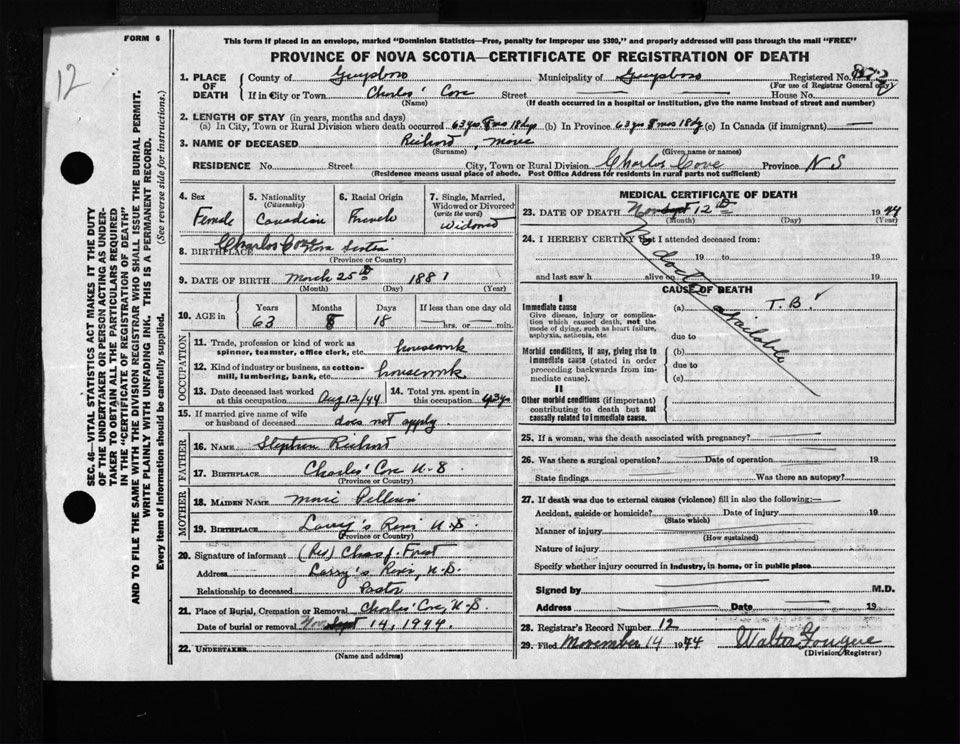 FORM 6
12
This form if placed in an envelope, marked "Dominion Statistics—Free, penalty for improper use $300," and properly addressed will pass through the mail "FREE"
PROVINCE OF NOVA SCOTIA—CERTIFICATE OF REGISTRATION OF DEATH
SEC. 46—VITAL STATISTICS ACT MAKES IT THE DUTY
OF THE UNDERTAKER OR PERSON ACTING AS UNDER-
TAKER TO OBTAIN ALL THE PARTICULARS REQUIRED
IN THE "CERTIFICATE OF REGISTRATION OF DEATH"
AND TO FILE THE SAME WITH THE DIVISION REGISTRAR WHO SHALL ISSUE THE BURIAL PERMIT.
WRITE PLAINLY WITH UNFADING INK. THIS IS A PERMANENT RECORD.
Every item of information should be carefully supplied. (See reverse side for instructions.)
1. PLACE OF DEATH
County of Guysboro Municipality of Guysboro Registered No.
(For use of Registrar General only)
If in City or Town Charlos' Cove Street House No.
(Name) (If death occurred in a hospital or institution, give the name instead of street and number)
2. LENGTH OF STAY (in years, months and days)
(a) In City, Town or Rural Division where death occurred 63 yrs 8 mos 18 days (b) In Province 63 yrs 8 mos 18 dy (c) In Canada (if immigrant) —
3. NAME OF DECEASED Richard, Marie
(Surname) (Given name or names)
RESIDENCE No. Street City, Town or Rural Division Charlos Cove Province N S
(Residence means usual place of abode. Post Office Address for residents in rural parts not sufficient)
4. Sex
Female
5. Nationality
(Citizenship)
Canadian
6. Racial Origin
French
7. Single, Married,
Widowed or Divorced
(write the word)
Widowed
8. BIRTHPLACE Charlos Cove Nova Scotia
(Province or Country)
9. DATE OF BIRTH March 25th 1881
(Month) (Day) (Year)
10. AGE in
Years Months Days If less than one day old
63 8 18 hrs. or min.
OCCUPATION
11. Trade, profession or kind of work as
spinner, teamster, office clerk, etc. housework
12. Kind of industry or business, as cotton-
mill, lumbering, bank, etc. housework
13. Date deceased last worked
at this occupation Aug 12/44
14. Total yrs. spent in
this occupation
15. If married give name of wife
or husband of deceased does not apply
FATHER
16. NAME Stephen Richard
17. BIRTHPLACE Charlos' Cove N.S.
(Province or Country)
MOTHER
18. MAIDEN NAME Marie Pellerin
19. BIRTHPLACE Larry's River N.S.
(Province or Country)
20. Signature of informant (Rev) Chas J. Forest
Address Larry's River, N.S.
Relationship to deceased Pastor
21. Place of Burial, Cremation or Removal Charlos' Cove, N.S.
Date of burial or removal Nov 14, 1944.
22. UNDERTAKER
(Name and address)
MEDICAL CERTIFICATE OF DEATH
23. DATE OF DEATH Nov 12th 1944
(Month) (Day) (Year)
24. I HEREBY CERTIFY that I attended deceased from:
19 to 19
and last saw h alive on 19
No doctor available
CAUSE OF DEATH
I
Immediate cause
Give disease, injury or complica-
tion which caused death, not the
mode of dying, such as heart failure,
asphyxia, asthenia, etc
(a) T.B.
due to
Morbid conditions, if any, giving rise to
immediate cause (stated in order
proceeding backwards from im-
mediate cause).
(b)
due to
(c)
II
Other morbid conditions (if important)
contributing to death but not
causally related to immediate cause.
25. If a woman, was the death associated with pregnancy?
26. Was there a surgical operation? Date of operation 19
State findings Was there an autopsy?
27. If death was due to external causes (violence) fill in also the following:—
Accident, suicide or homicide? Date of injury 19
(State which)
Manner of injury
(How sustained)
Nature of injury
Specify whether injury occurred in industry, in home, or in public place
Signed by M.D.
Address Date 19
28. Registrar's Record Number 12
29. Filed November 14 1944 Walter Fougere
(Division Registrar)